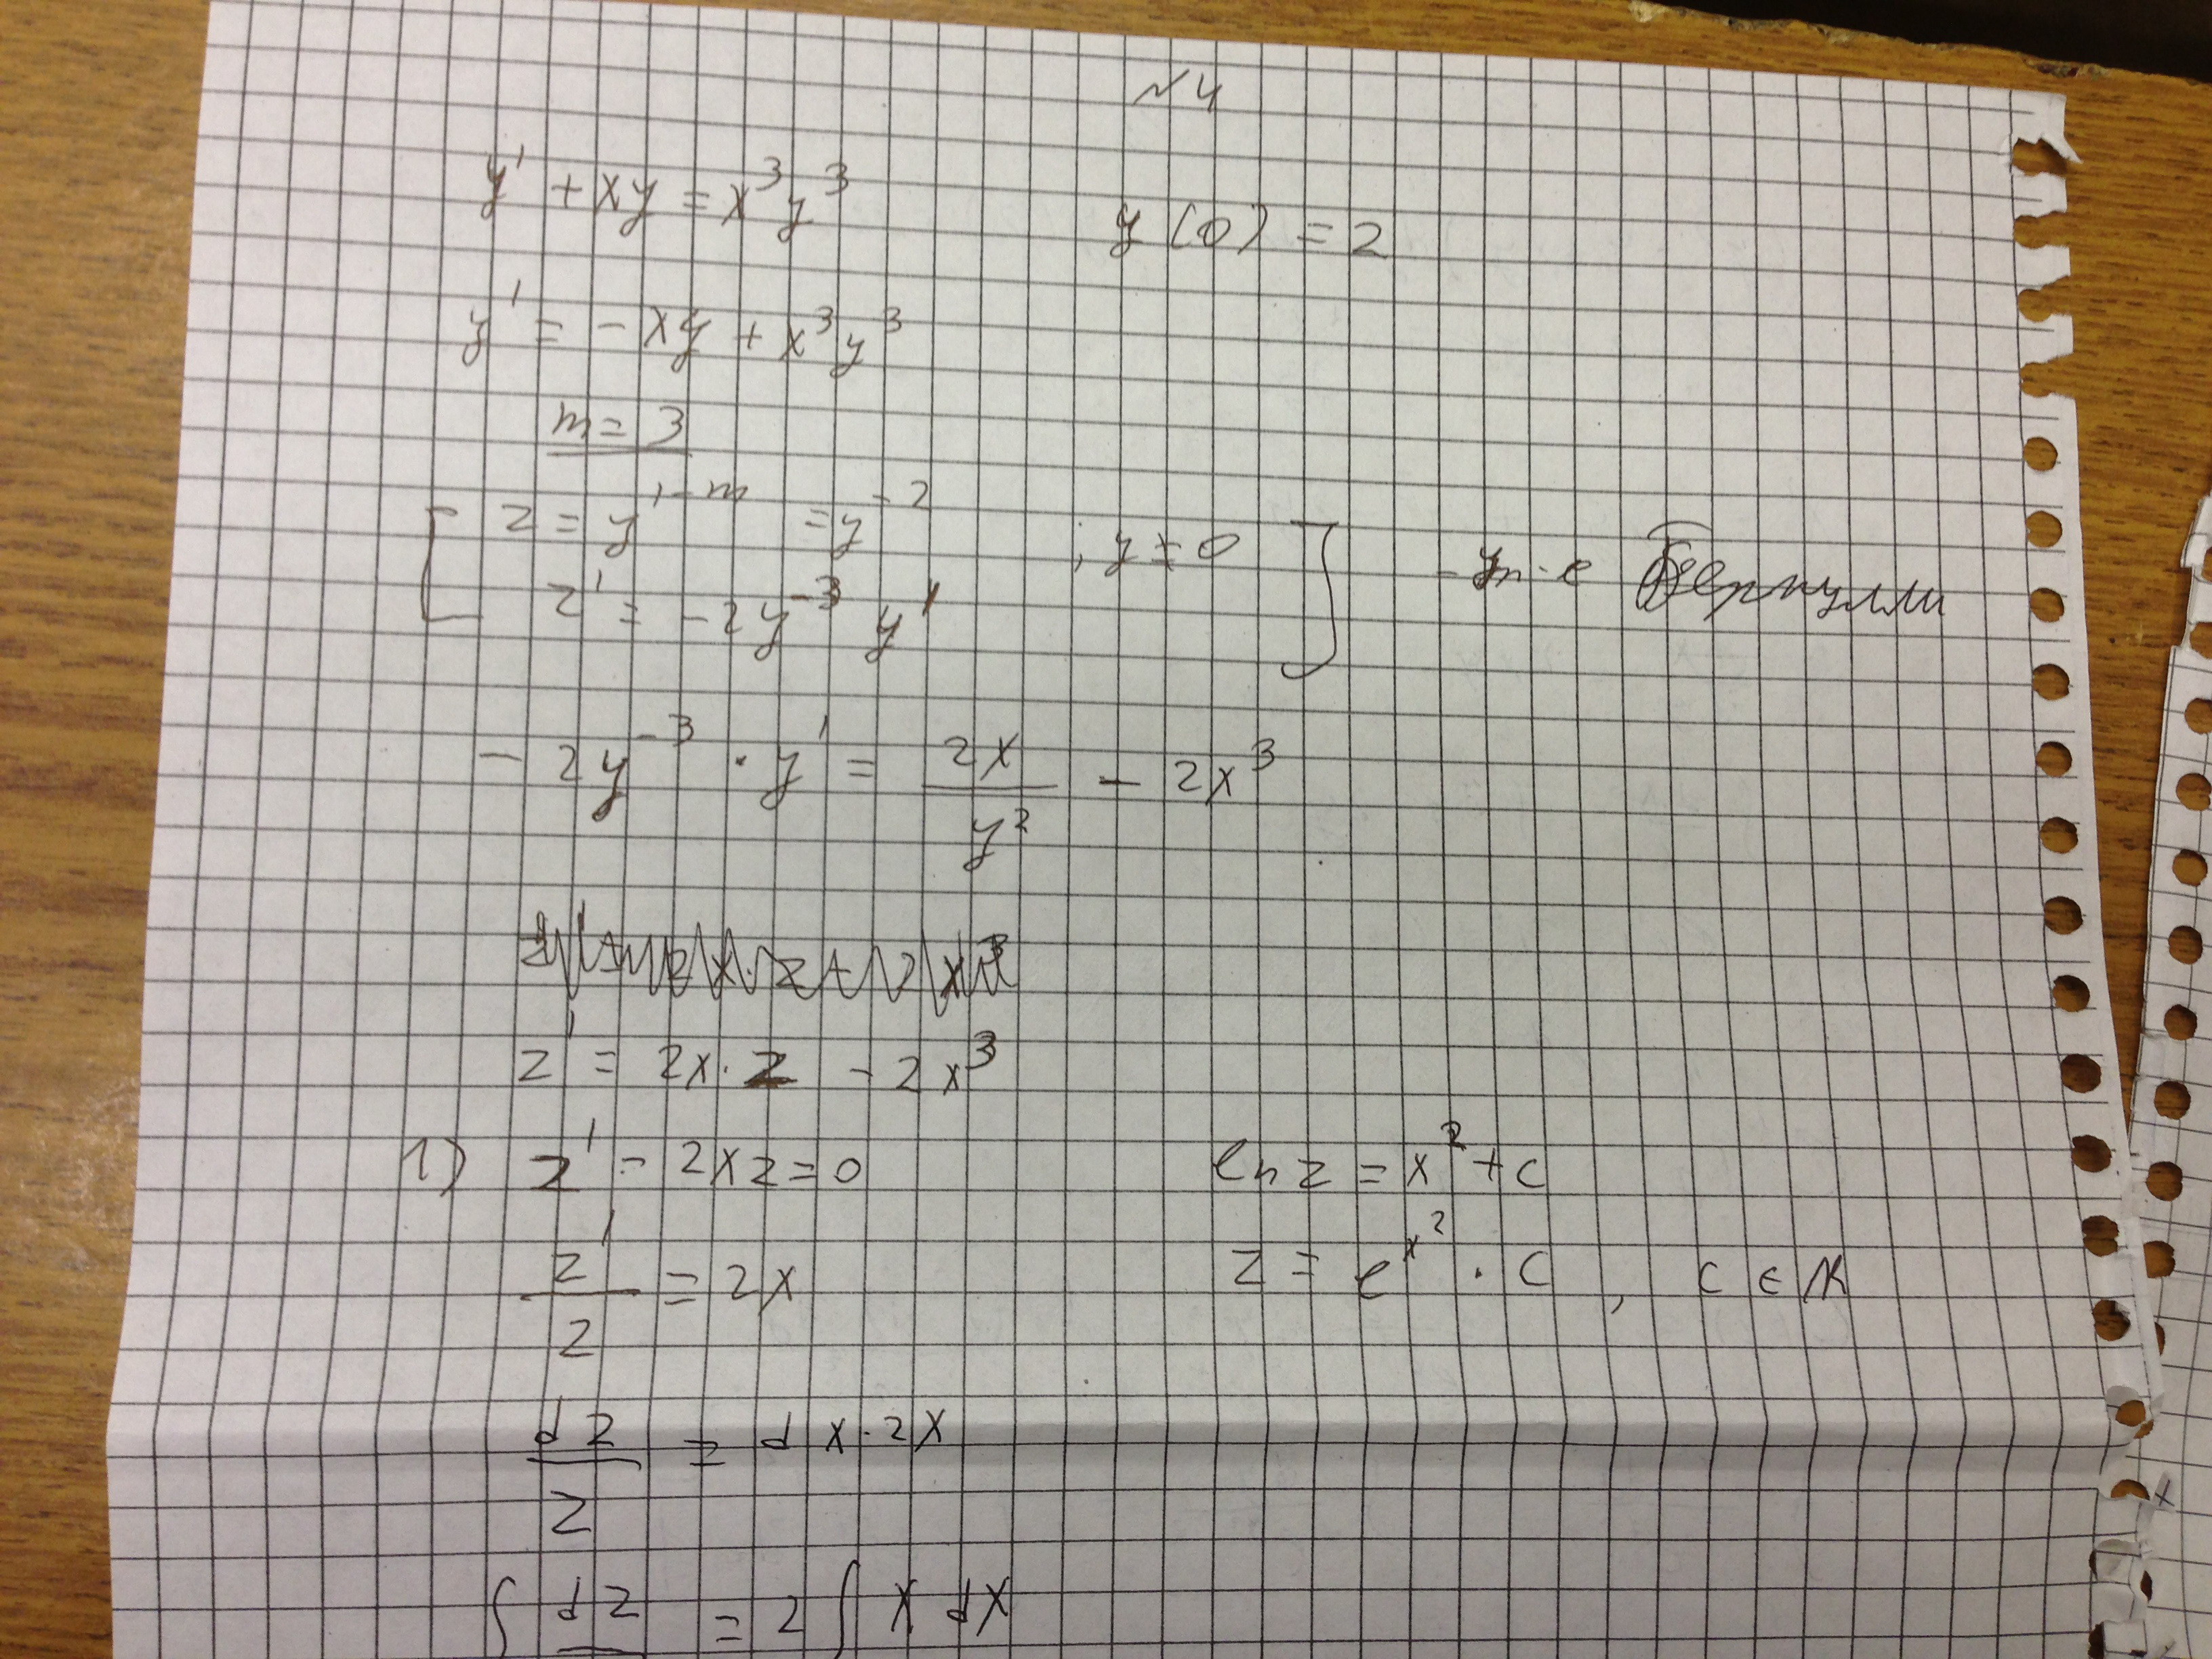 №4
y' + xy = x³y³    y(0) = 2
y' = -xy + x³y³
m = 3
z = y^(1-m) = y^(-2) ; y ≠ 0
z' = -2y^(-3) y'
- ур-е Бернулли
-2y^(-3) · y' = 2x/y² - 2x³
z' = 2x·z - 2x³
1) z' - 2xz = 0
z'/z = 2x
dz/z = dx·2x
∫ dz = 2∫ x dx
ln z = x² + c
z = e^(x²) · c , c ∈ R